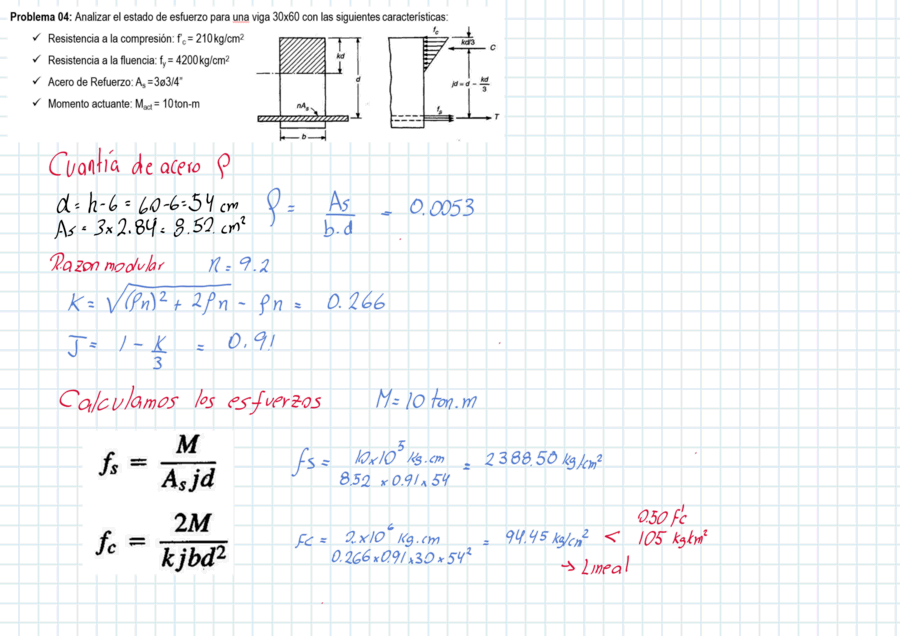 Problema 04: Analizar el estado de esfuerzo para una viga 30x60 con las siguientes características:
✓ Resistencia a la compresión: f'c = 210kg/cm²
✓ Resistencia a la fluencia: fy = 4200kg/cm²
✓ Acero de Refuerzo: As =3ø3/4"
✓ Momento actuante: Mact = 10ton-m
kd
d
nAs
b
fc
kd/3
C
jd = d - kd/3
fs
T
Cuantía de acero ρ
d = h-6 = 60-6=54 cm
As = 3x2.84 = 8.52 cm²
ρ = As / b.d = 0.0053
Razon modular n = 9.2
K = √(ρn)² + 2ρn - ρn = 0.266
J = 1 - K/3 = 0.91
Calculamos los esfuerzos M = 10 ton.m
fs = M / As jd
fs = 10x10⁵ kg.cm / 8.52 x 0.91 x 54 = 2388.50 kg/cm²
fc = 2M / kjbd²
fc = 2x10⁶ kg.cm / 0.266x0.91x30x54² = 94.45 kg/cm² < 0.50 f'c
105 kg/cm²
→ Lineal